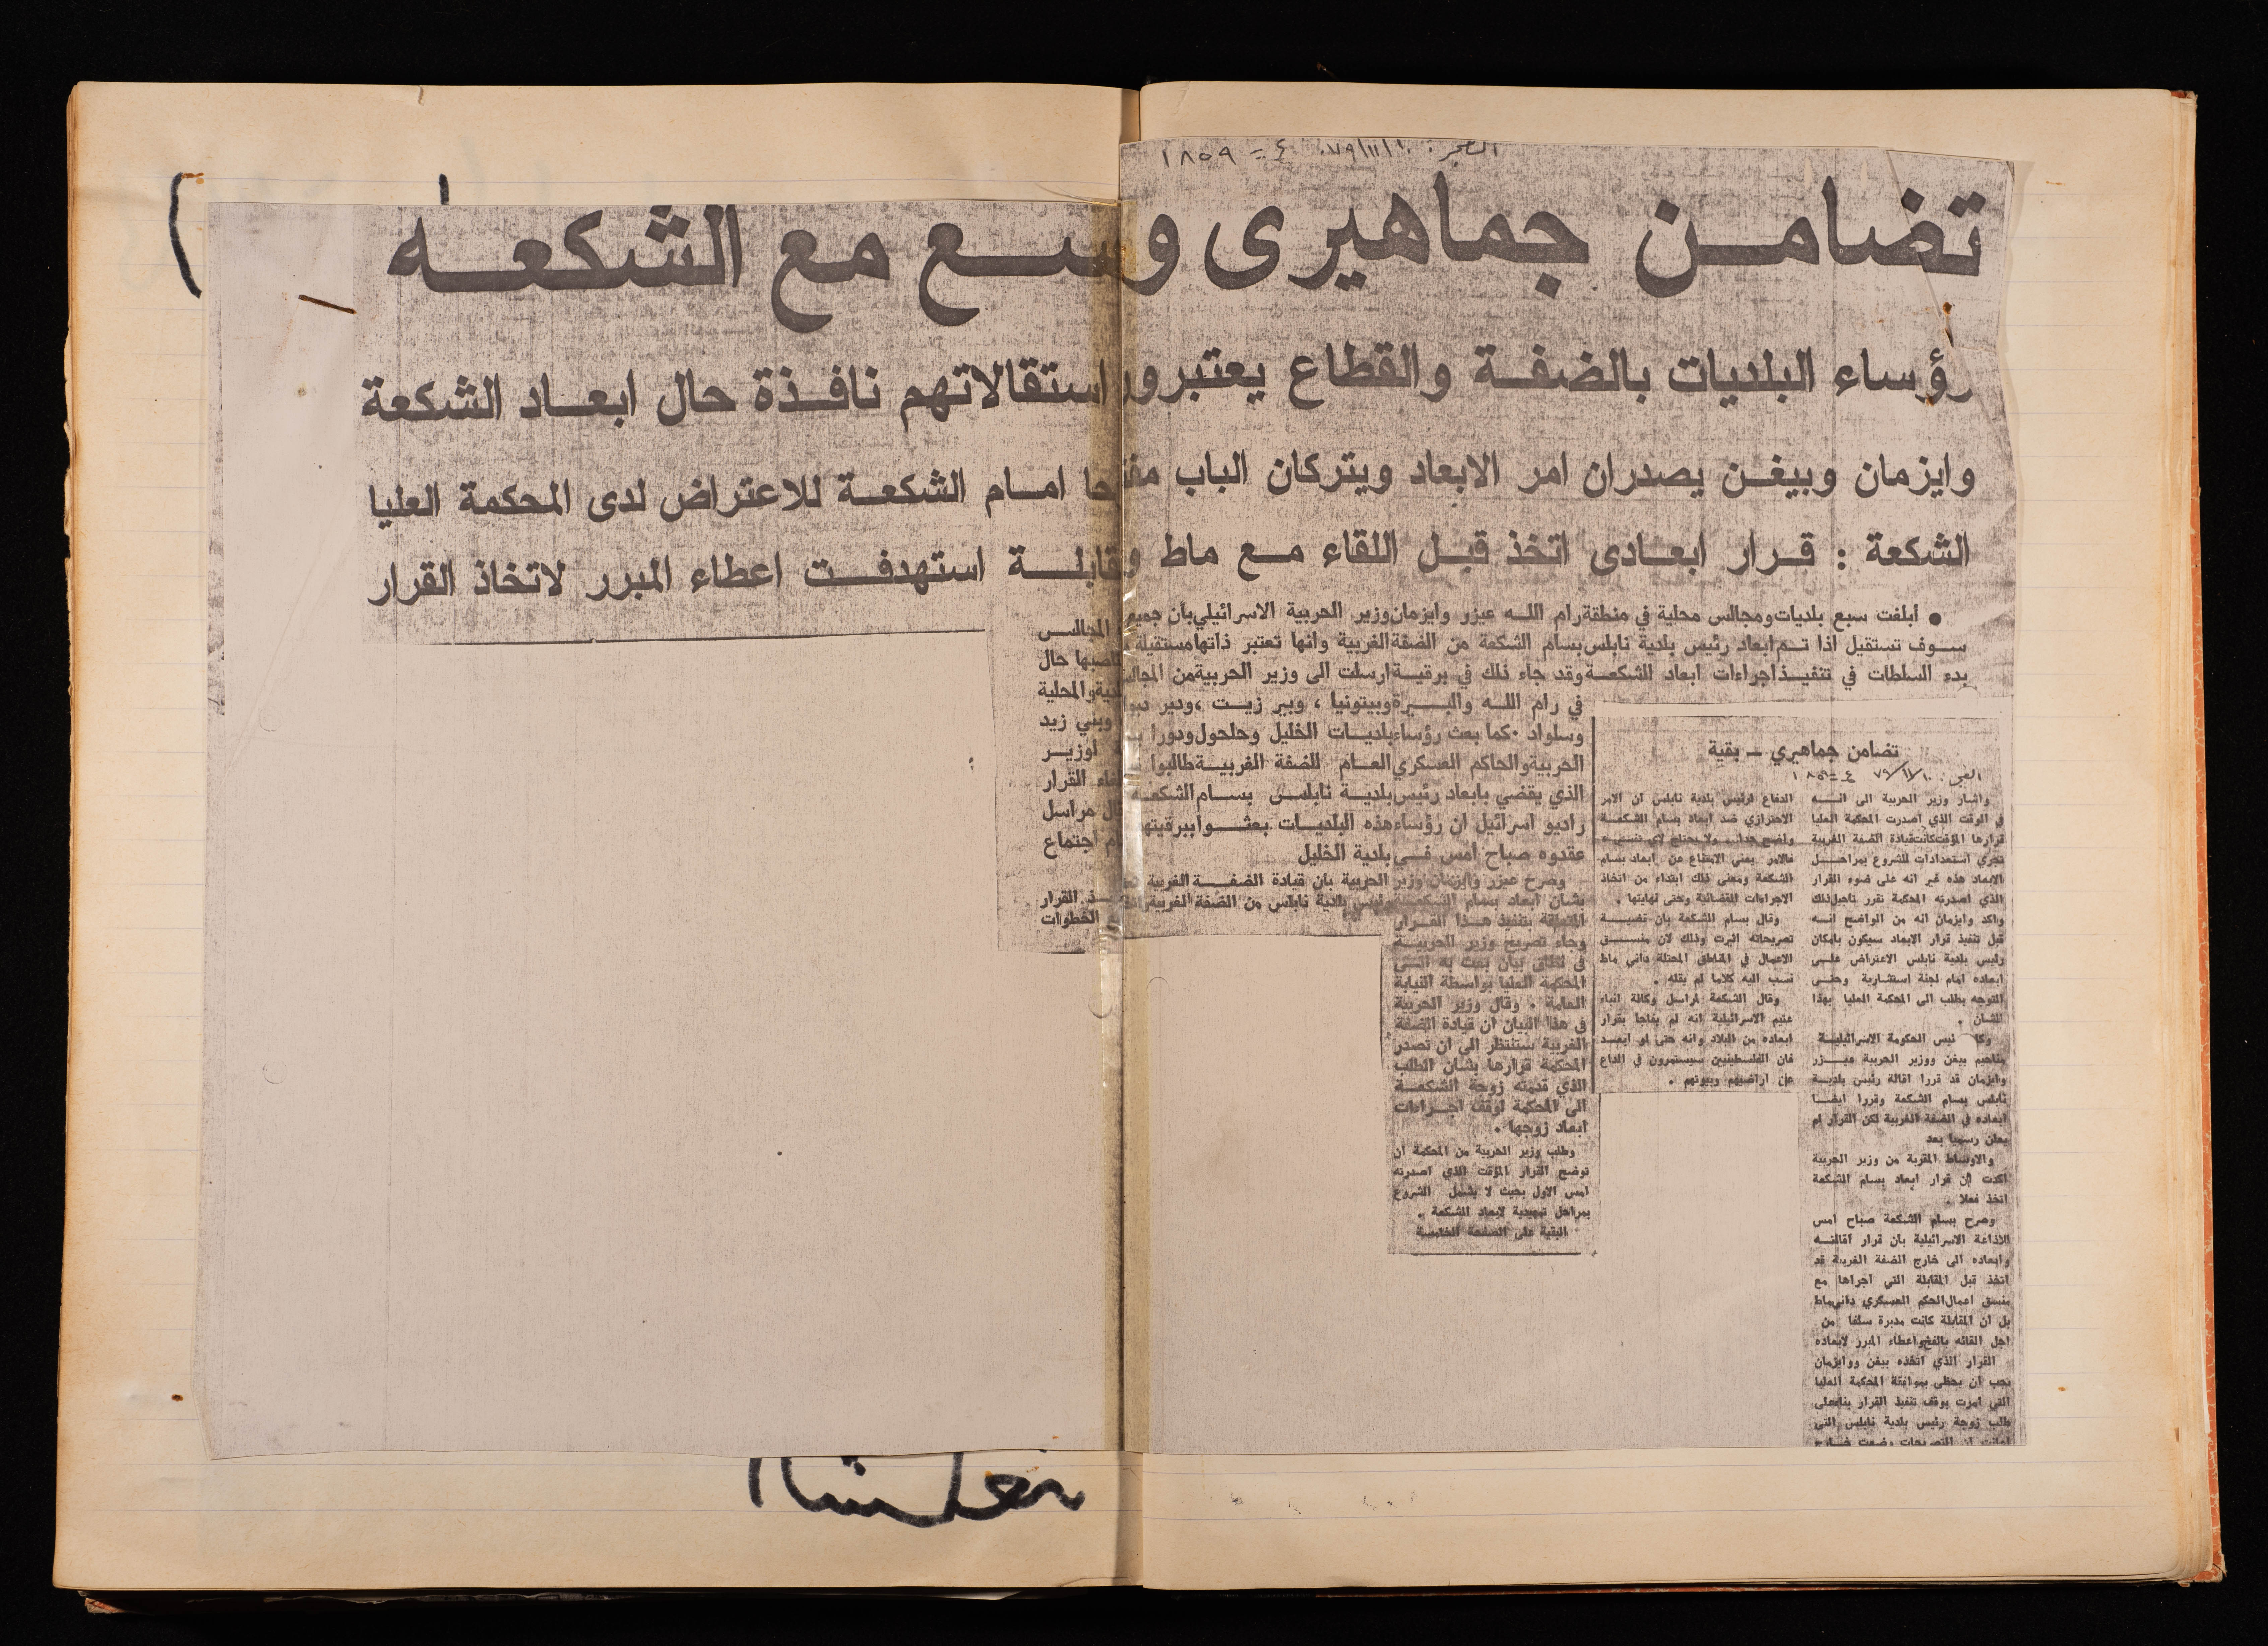 الفجر: ٧٩/١١/١٠ ع = ١٨٥٩
تضامن جماهيرى واسع مع الشكعه
رؤساء البلديات بالضفة والقطاع يعتبرون استقالاتهم نافذة حال ابعاد الشكعة
وايزمان وبيغن يصدران امر الابعاد ويتركان الباب مفتوحا امام الشكعة للاعتراض لدى المحكمة العليا
الشكعة : قرار ابعادى اتخذ قبل اللقاء مع ماط ومقابلة استهدفت اعطاء المبرر لاتخاذ القرار
● ابلغت سبع بلديات ومجالس محلية في منطقة رام الله عيزر وايزمان وزير الحربية الاسرائيلي بان جميع المجالس
سوف تستقيل اذا تم ابعاد رئيس بلدية نابلس بسام الشكعة من الضفة الغربية وانها تعتبر ذاتها مستقيلة حال
بدء السلطات في تنفيذ اجراءات ابعاد الشكعة وقد جاء ذلك في برقية ارسلت الى وزير الحربية من المجالس والمحلية
في رام الله والبيرة وبيتونيا ، وبير زيت ، ودير وبني زيد
وسلواد . كما بعث رؤساء بلديات الخليل وحلحول ودورا لوزير
الحربية والحاكم العسكري العام للضفة الغربية طالبوا القرار
الذي يقضي بابعاد رئيس بلدية نابلس بسام الشكعة مراسل
راديو اسرائيل ان رؤساء هذه البلديات بعثوا ببرقيتهم اجتماع
عقدوه صباح امس في بلدية الخليل
وصرح عيزر وايزمان وزير الحربية بان قيادة الضفة الغربية القرار
بشان ابعاد بسام الشكعة رئيس بلدية نابلس من الضفة الغربية الخطوات
المتعلقة بتنفيذ هذا القرار
وجاء تصريح وزير الحربية
في نطاق بيان بعث به الى
المحكمة العليا بواسطة النيابة
العامة . وقال وزير الحربية
في هذا البيان ان قيادة الضفة
الغربية ستنتظر الى ان تصدر
المحكمة قرارها بشان الطلب
الذي قدمته زوجة الشكعة
الى المحكمة لوقف اجراءات
ابعاد زوجها .
وطلب وزير الحربية من المحكمة ان
توضح القرار المؤقت الذي اصدرته
امس الاول بحيث لا يشمل الشروع
بمراحل تمهيدية لابعاد الشكعة .
البقية على الصفحة الخامسة
تضامن جماهيري - بقية
الفجر: ٧٩/١١/١٠ ع = ١٨٥٩
واشار وزير الحربية الى انه
في الوقت الذي اصدرت المحكمة العليا
قرارها المؤقت كانت قيادة الضفة الغربية
تجري استعدادات للشروع بمراحل
الابعاد هذه غير انه على ضوء القرار
الذي اصدرته المحكمة تقرر تاجيل ذلك
واكد وايزمان انه من الواضح انه
قبل تنفيذ قرار الابعاد سيكون بامكان
رئيس بلدية نابلس الاعتراض على
ابعاده امام لجنة استشارية وحتى
التوجه بطلب الى المحكمة العليا بهذا
الشان .
وكان رئيس الحكومة الاسرائيلية
مناحيم بيغن ووزير الحربية عيزر
وايزمان قد قررا اقالة رئيس بلدية
نابلس بسام الشكعة وقررا ايضا
ابعاده في الضفة الغربية لكن القرار لم
يعلن رسميا بعد
والاوساط المقربة من وزير الحربية
اكدت ان قرار ابعاد بسام الشكعة
اتخذ فعلا .
وصرح بسام الشكعة صباح امس
للاذاعة الاسرائيلية بان قرار اقالته
وابعاده الى خارج الضفة الغربية قد
اتخذ قبل المقابلة التي اجراها مع
منسق اعمال الحكم العسكري داني ماط
بل ان المقابلة كانت مدبرة سلفا من
اجل القائه بالفخ واعطاء المبرر لابعاده
القرار الذي اتخذه بيغن ووايزمان
يجب ان يحظى بموافقة المحكمة العليا
التي امرت بوقف تنفيذ القرار بناء على
طلب زوجة رئيس بلدية نابلس التي
الدفاع لرئيس بلدية نابلس ان الامر
الاحترازي ضد ابعاد بسام الشكعة
واضح جدا ولا يحتاج لاي تفسير
فالامر يعني الامتناع عن ابعاد بسام
الشكعة ومعنى ذلك ابتداء من اتخاذ
الاجراءات القضائية وحتى نهايتها .
وقال بسام الشكعة بان قضية
تصريحاته اثيرت وذلك لان منسق
الاعمال في المناطق المحتلة داني ماط
نسب اليه كلاما لم يقله .
وقال الشكعة لمراسل وكالة انباء
عتيم الاسرائيلية انه لم يفاجا بقرار
ابعاده من البلاد وانه حتى لو ابعد
فان الفلسطينيين سيستمرون في الدفاع
عن اراضيهم وبيوتهم .